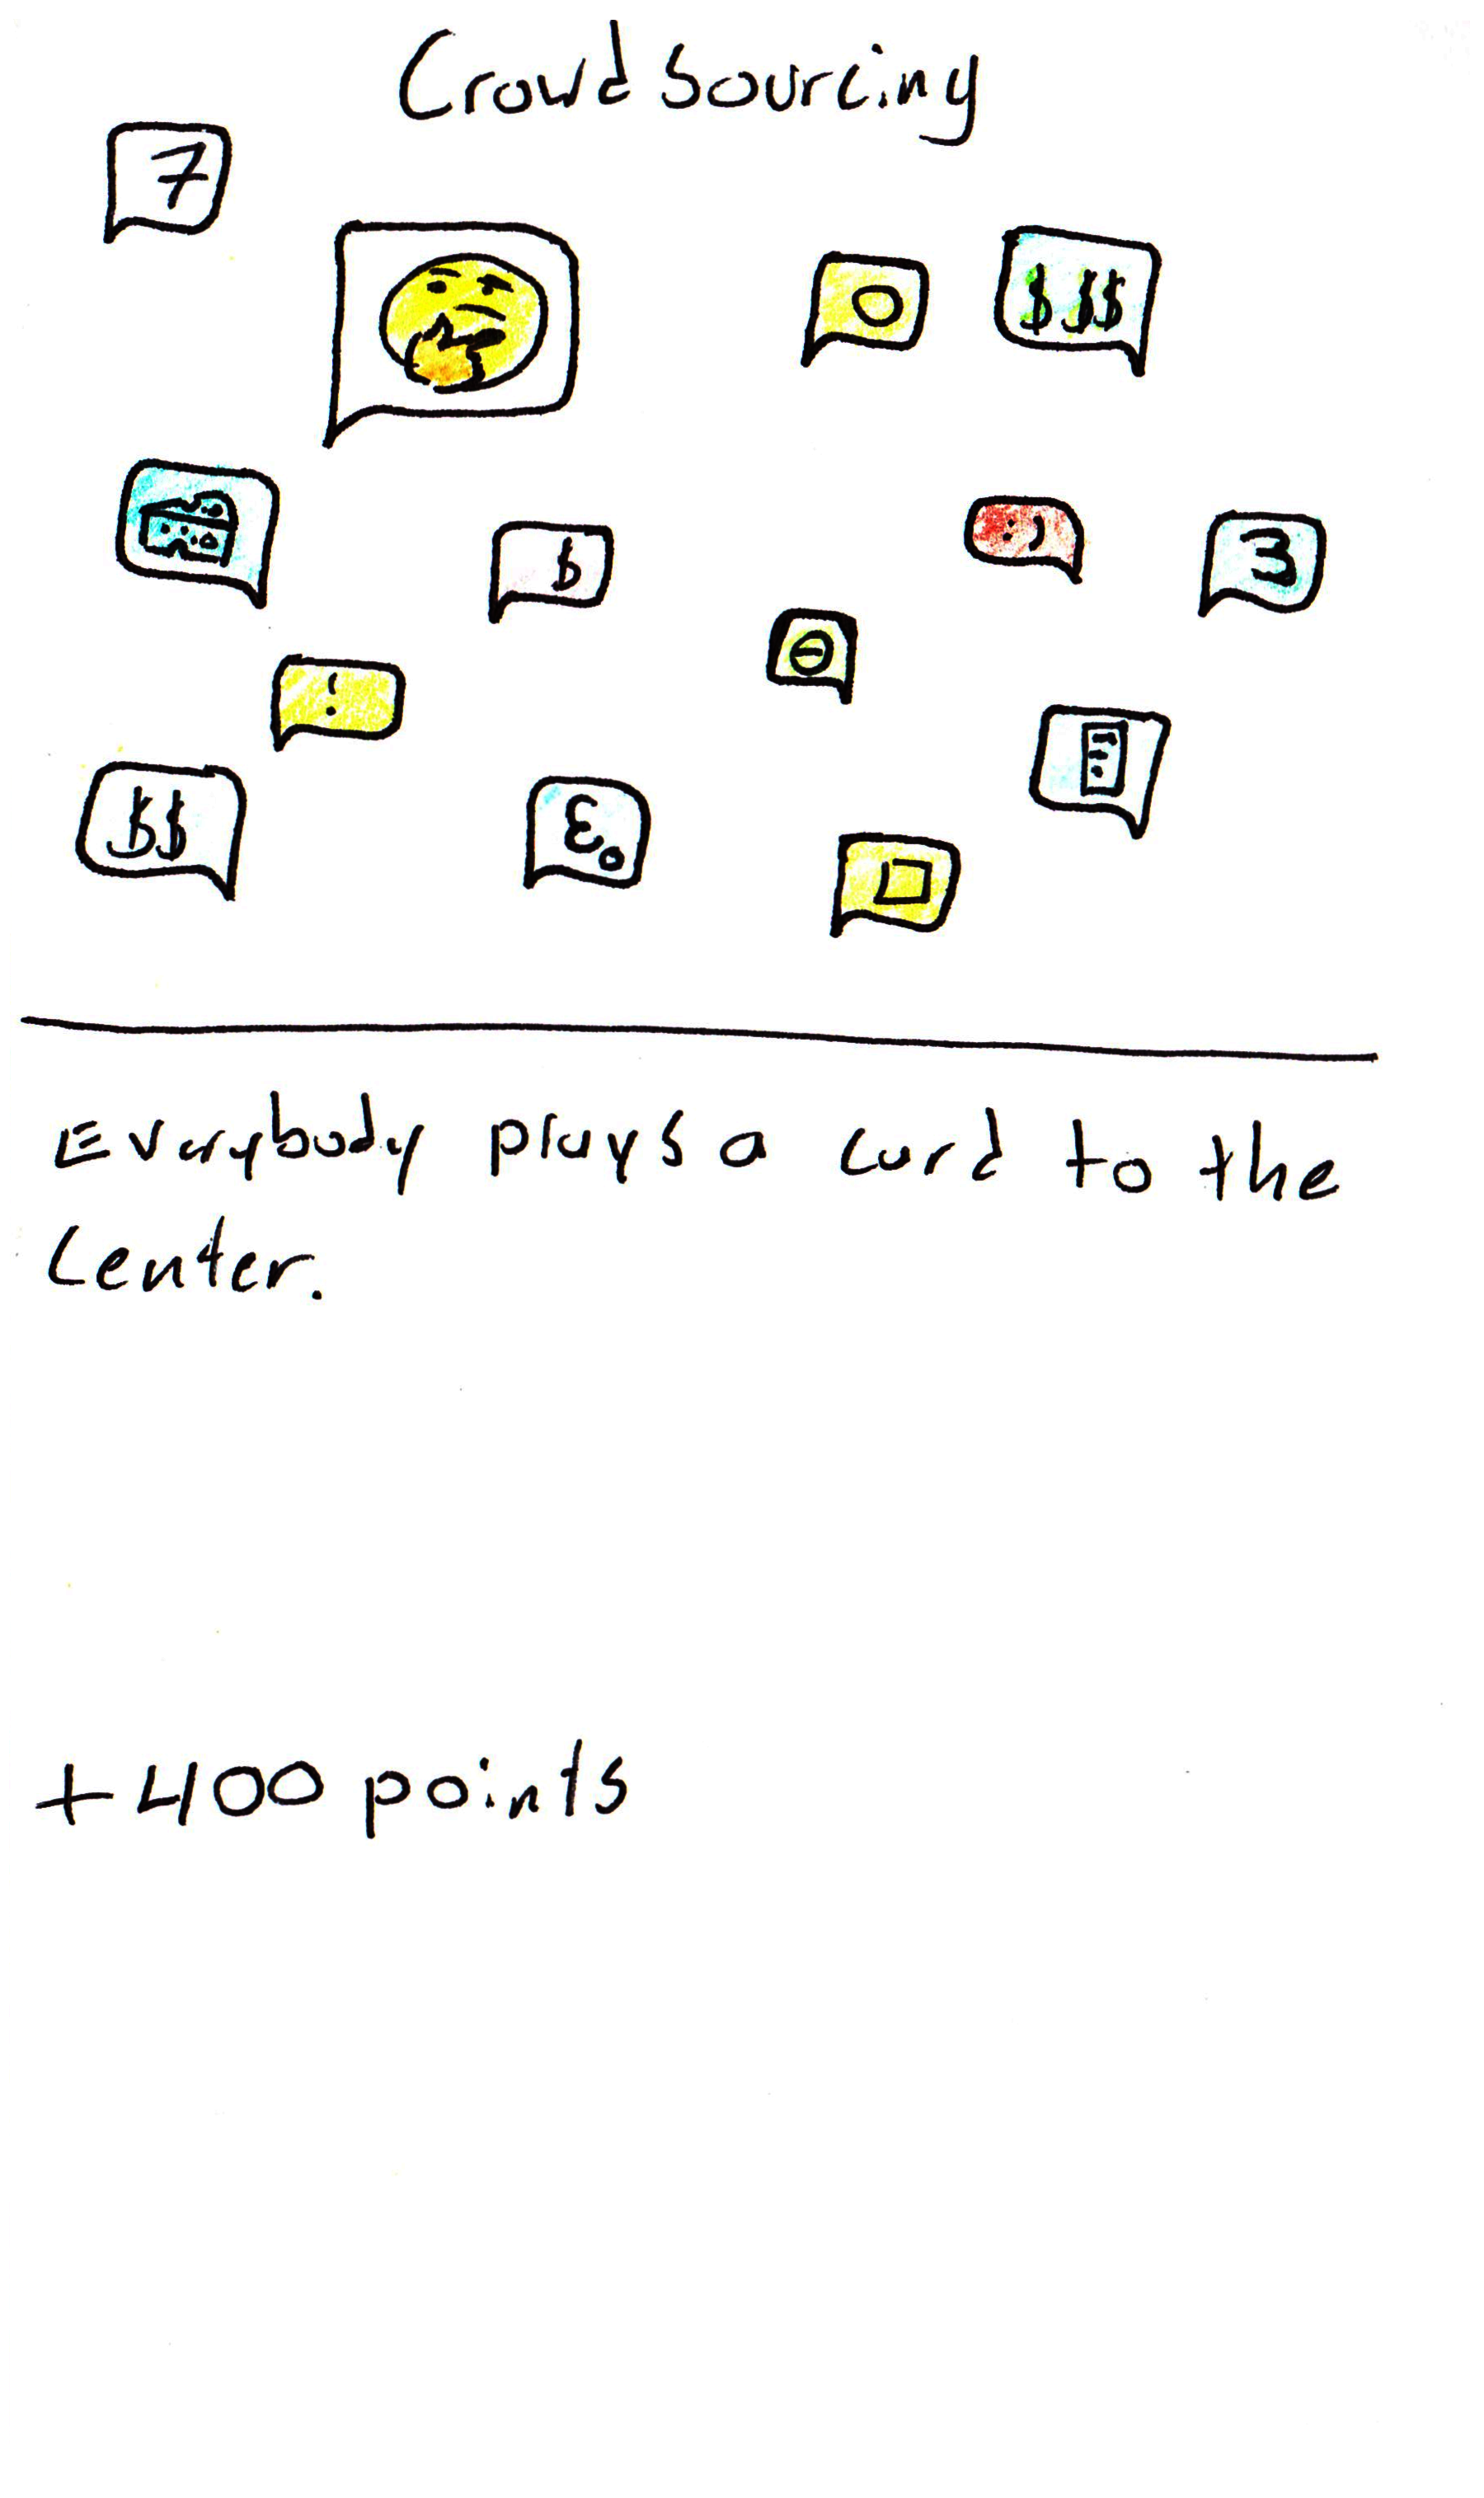 Crowdsourcing
7
$$$
$
:)
3
!
$$
Everybody plays a card to the
Center.
+400 points